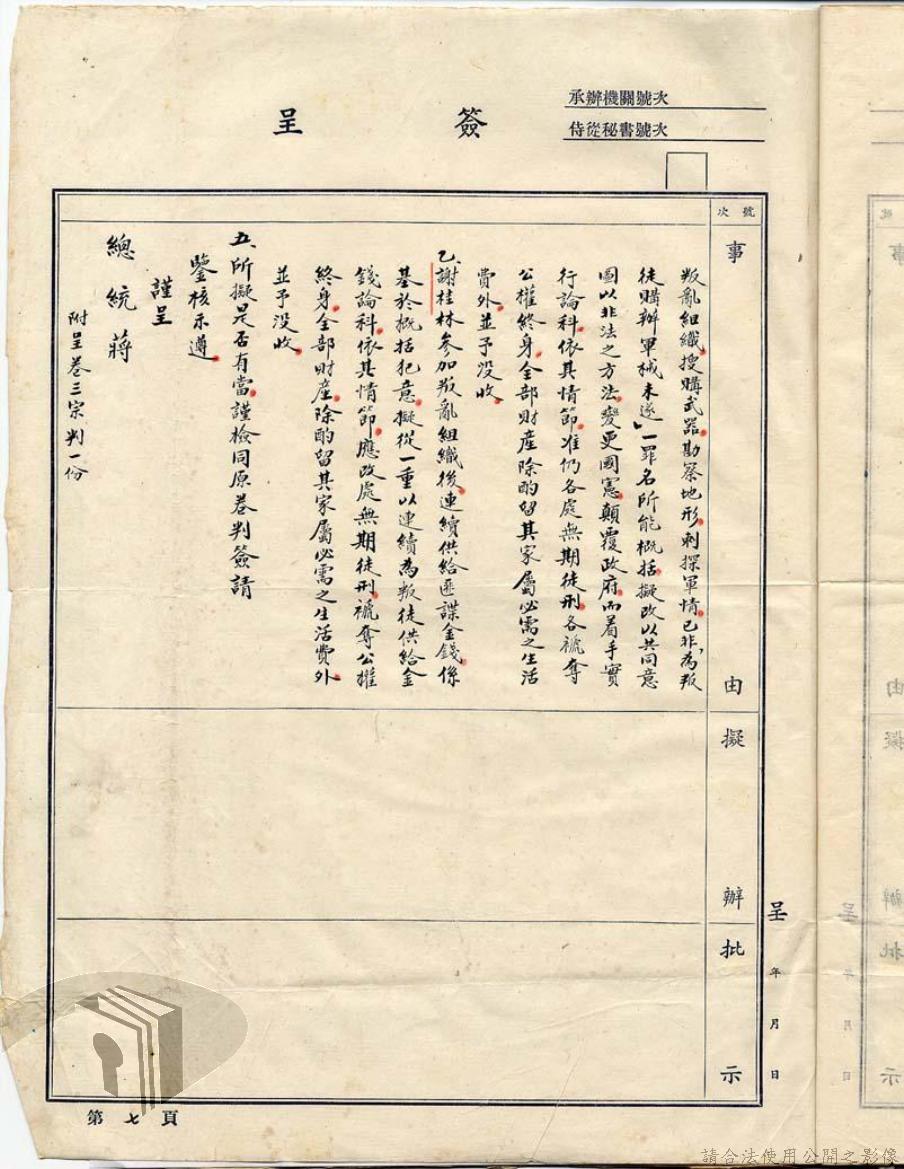 簽呈
承辦機關號次
侍從秘書號次
號次
事由
擬辦
批示
叛亂組織搜購武器勘察地形刺探軍情已非「為叛
徒購辦軍械未遂」一罪名所能概括擬改以共同意
圖以非法之方法變更國憲顛覆政府而着手實
行論科依其情節准仍各處無期徒刑各褫奪
公權終身全部財產除酌留其家屬必需之生活
費外並予沒收
乙、謝桂林參加叛亂組織後連續供給匪諜金錢係
基於概括犯意擬從一重以連續為叛徒供給金
錢論科依其情節應改處無期徒刑褫奪公權
終身全部財產除酌留其家屬必需之生活費外
並予沒收
五、所擬是否有當謹檢同原卷判簽請
鑒核示遵
謹呈
總統蔣
附呈卷三宗判一份
呈 年 月 日
第七頁
請合法使用公開之影像